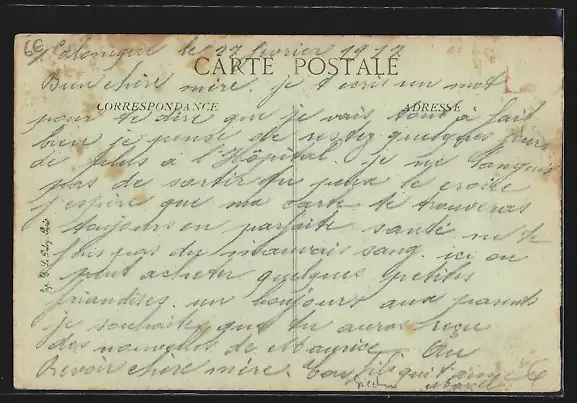 Salonique le 27 février 1917
CARTE POSTALE
Bien chère mère, je t'ecris un mot
CORRESPONDANCE
ADRESSE
pour te dire que je vais tout à fait
bien je pense de restez quelques jours
de plus à l'Hôpital. je me languis
pas de sortir tu peux le croire
j'espère que ma carte te trouveras
toujours en parfaite santé ne te
fais pas du mauvais sang. ici on
peut acheter quelques petites
friandises. un bonjours aux parents
je souhaites que tu auras reçu
des nouvelles de Maurice. Au
Revoir chère mère. ton fils qui t'aime
Marcel